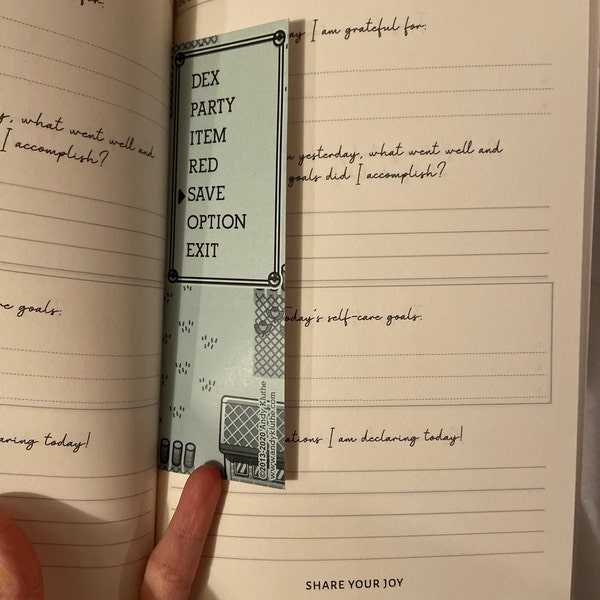 y, what went well and
I accomplish?
goals:
aring today!
DEX
PARTY
ITEM
RED
SAVE
OPTION
EXIT
©2013-2020 Andy Kluthe
www.andykluthe.com
ay I am grateful for:
n yesterday, what went well and
goals did I accomplish?
Today's self-care goals:
ations I am declaring today!
SHARE YOUR JOY